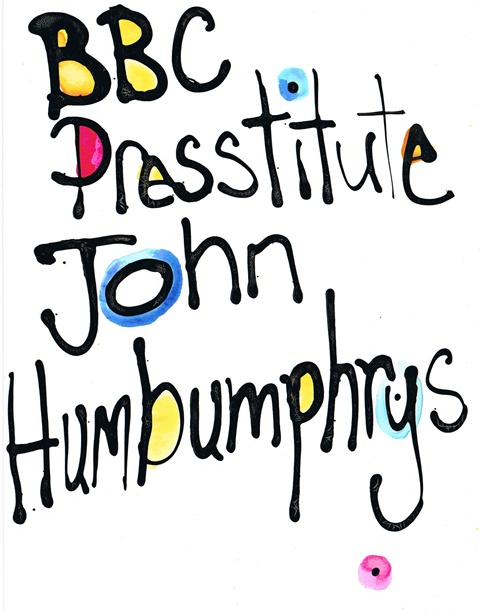 BBC
Presstitute
John
Humbumphrys